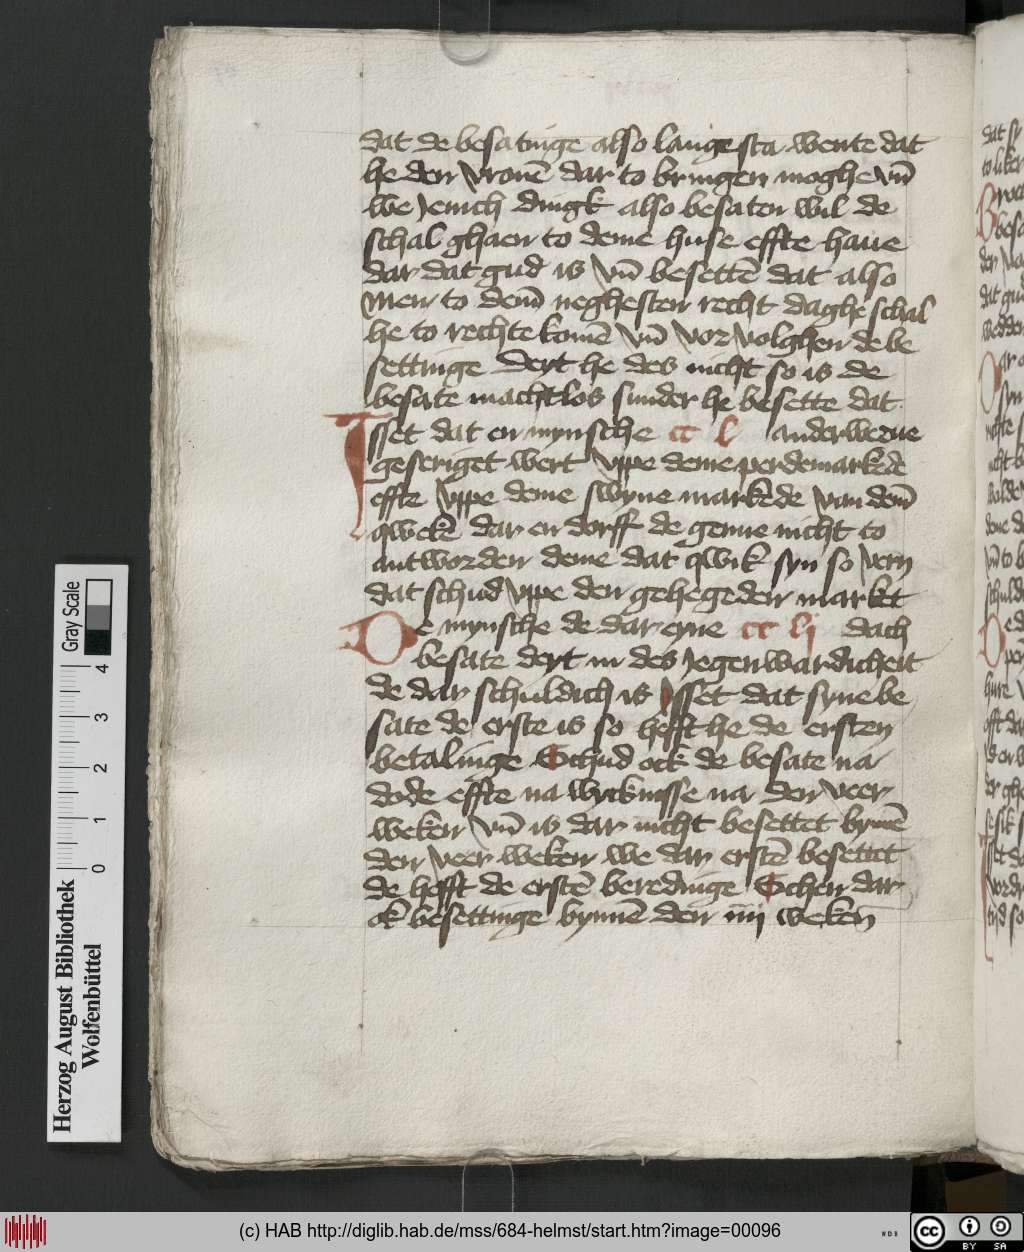 dat de besatinge also lange sta wente dat
he den vronē dar to bringen moghe vn̄
we Jenich dingk also besaten wil de
schal ghaen to deme huse effte haue
dar dat gud is vn̄ besettē dat also
men to dem̄ neghesten recht daghe schal
he to rechte komē vn̄ vor volghen de be
settinge deyt he des nicht so is de
besate machtlos sunder he besette dat
Isset dat en mynsche cc l anderwerue
geseriget wert vppe deme perdemarkede
effte vppe deme swyne markede van dem̄
qwekē dar en dorff de genne nicht to
antworden deme dat qwik syn so vern
dat schud vppe den gehegeden market
De mynsche de dar eyne cc lj dach
besate deyt in des Jegenwardicheit
de dar schuldich is Isset dat syne be
sate de erste is so hefft he de ersten
betalinge Schud ock de besate na
dode effte na wyknisse na den veer
weken vn̄ is dar nicht besettet bynnē
den veer weken we dar erstē besettet
de hefft de erstē beredinge Schen dar
ok besettinge bynnē den iiij weken
Herzog August Bibliothek
Wolfenbüttel
Gray Scale
0 1 2 3 4
(c) HAB http://diglib.hab.de/mss/684-helmst/start.htm?image=00096
WDB
cc BY SA